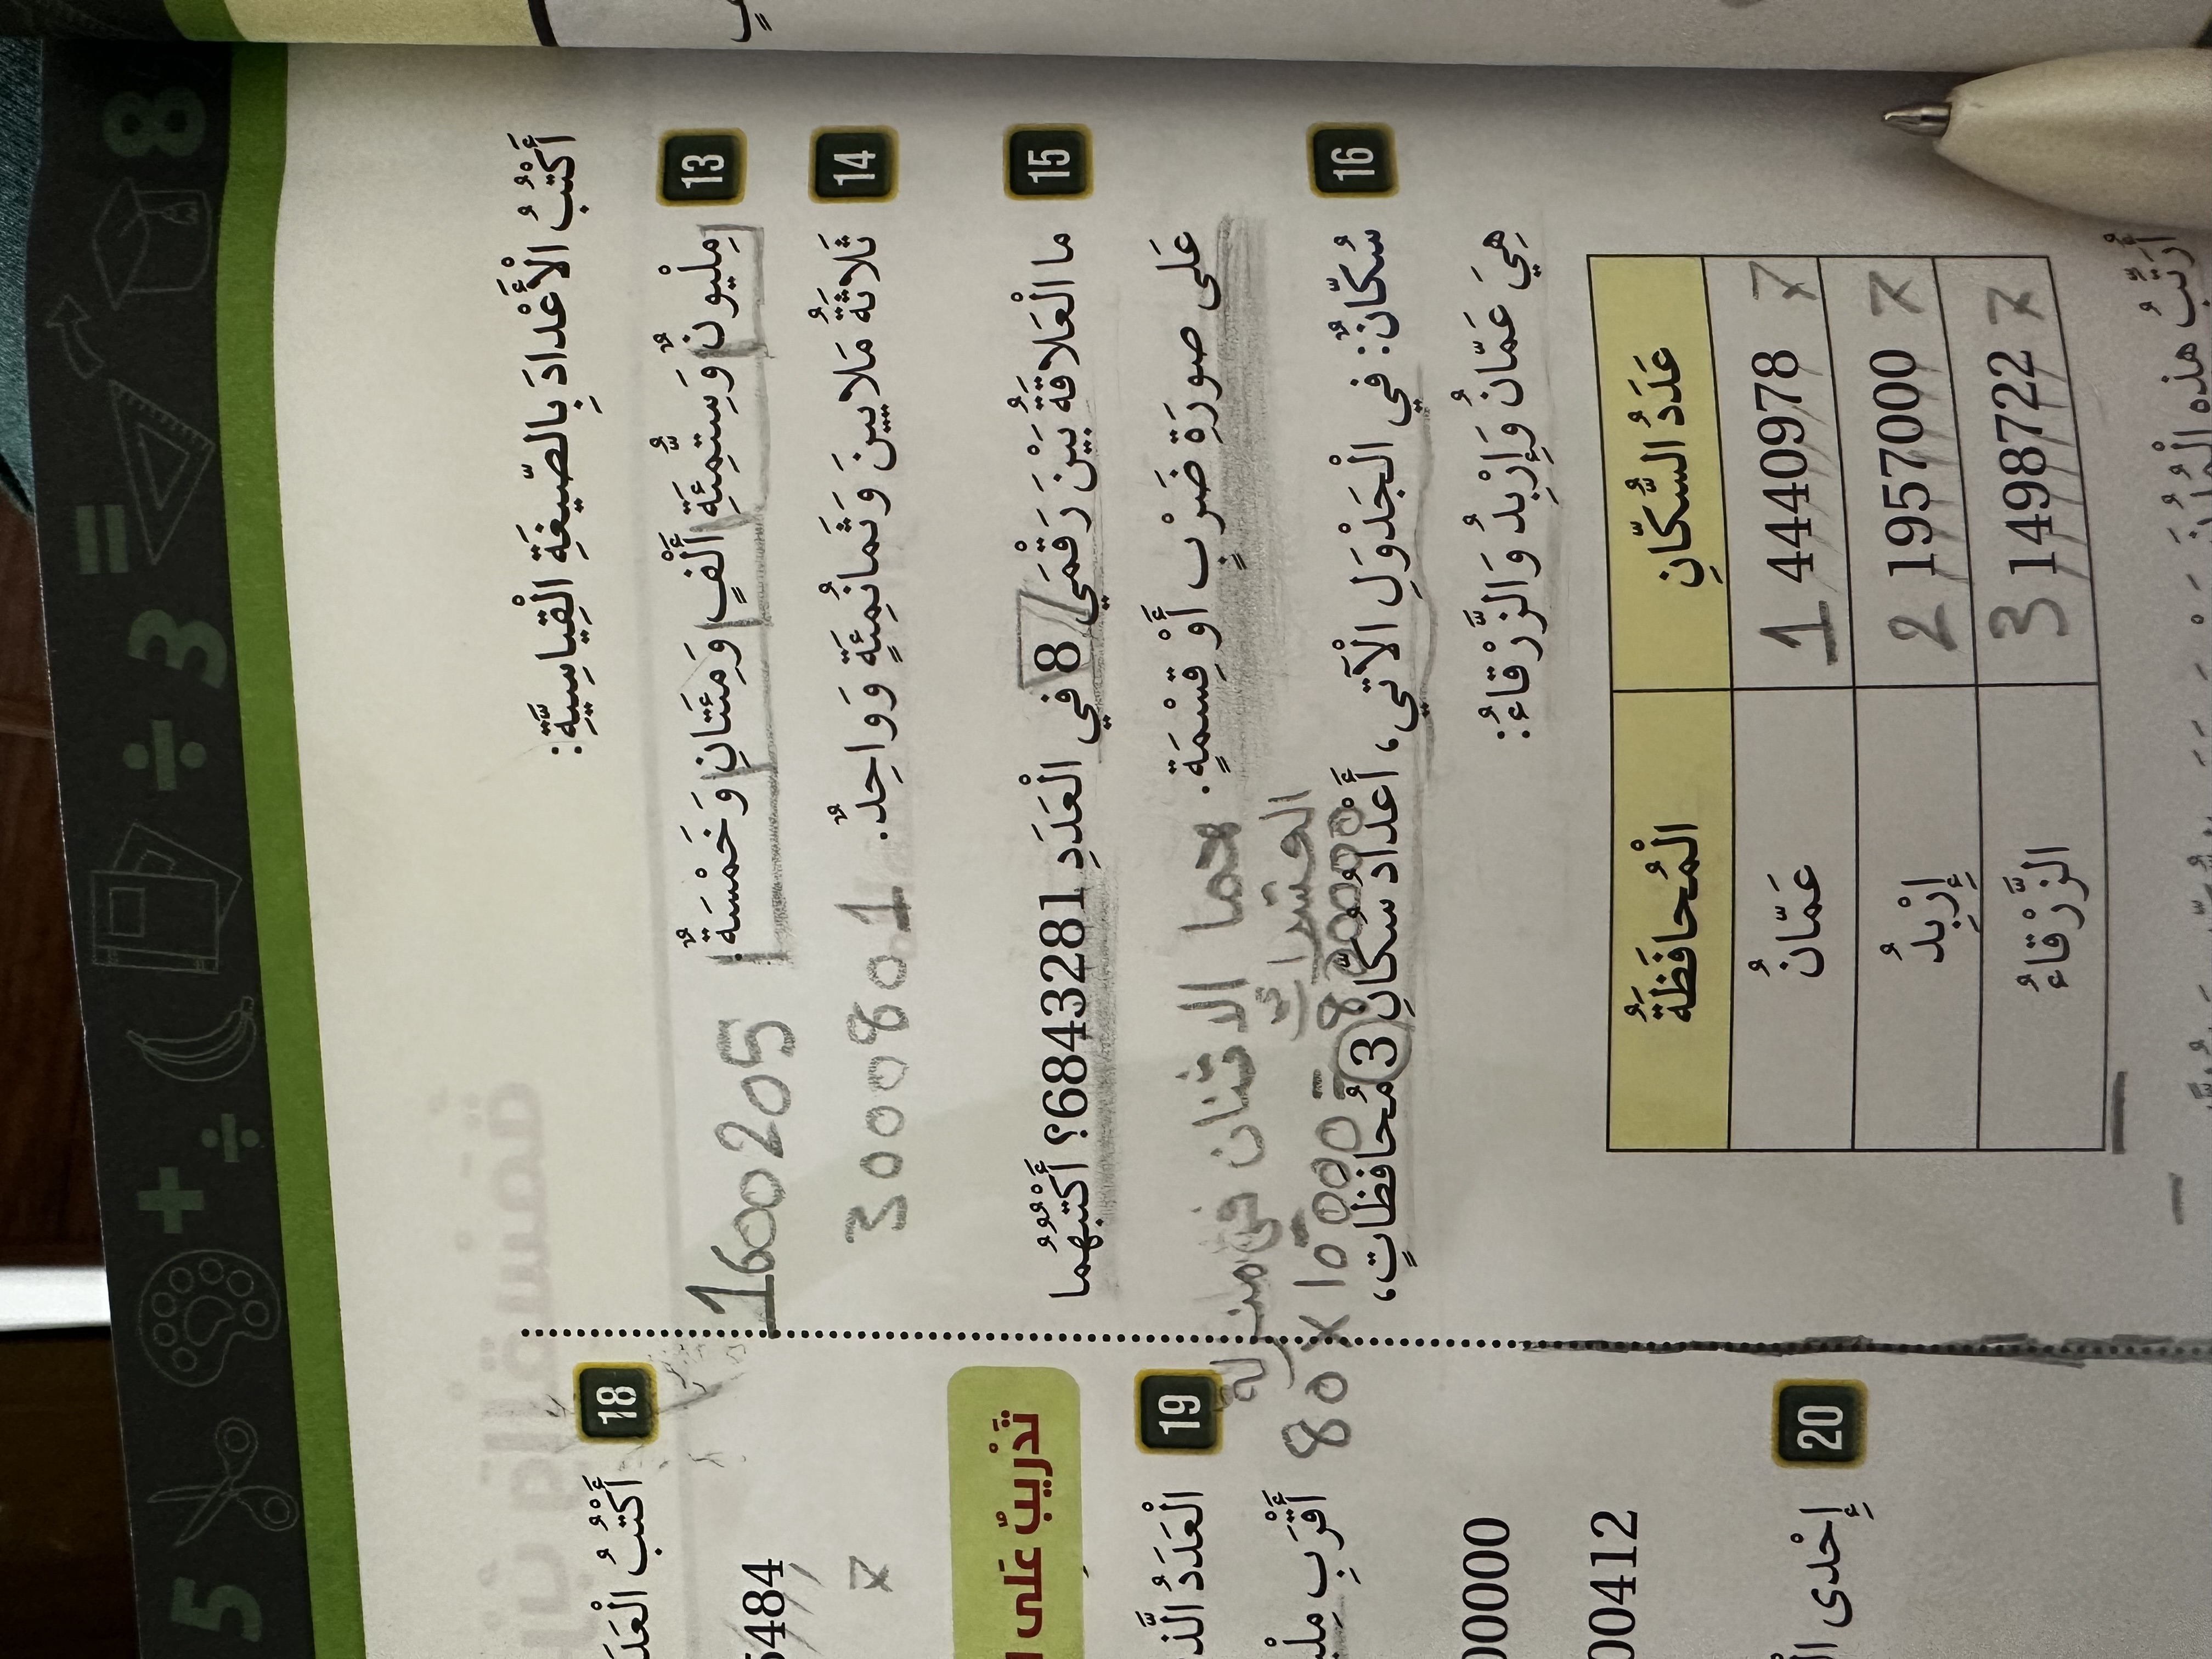 أَكْتُبُ الْأَعْدادَ بِالصّيغَةِ الْقِياسِيَّةِ:
13 مِلْيونٌ وَسِتُّمِئَةِ أَلْفٍ وَمِئَتانِ وَخَمْسَةٌ
1600205
14 ثَلاثَةُ مَلايينَ وَثَمانُمِئَةٍ وَواحِدٌ.
3000801
15 ما الْعَلاقَةُ بَيْنَ رَقْمَيِ 8 في الْعَدَدِ 6843281؟ أَكْتُبُهُما
عَلى صورَةِ ضَرْبٍ أَوْ قِسْمَةٍ.
هما الاثنان في منزلة
العشرات
80 × 10000 = 800000
16 سُكّانٌ: في الْجَدْوَلِ الْآتي، أَعْدادُ سُكّانِ 3 مُحافَظاتٍ،
هِيَ عَمّانُ وَإِرْبِدُ وَالزَّرْقاءُ:
الْمُحافَظَةُ عَدَدُ السُّكّانِ
عَمّانُ 1 4440978
إِرْبِدُ 2 1957000
الزَّرْقاءُ 3 1498722
أُرَتِّبُ هذِهِ الْمُدُنَ
18 أَكْتُبُ الْعَدَ
5484
تَدْريبٌ عَلى
19 الْعَدَدُ الَّذ
أَقْرَبِ مِلْي
00000
00412
20 إِحْدى
5 ÷ 3 = 8